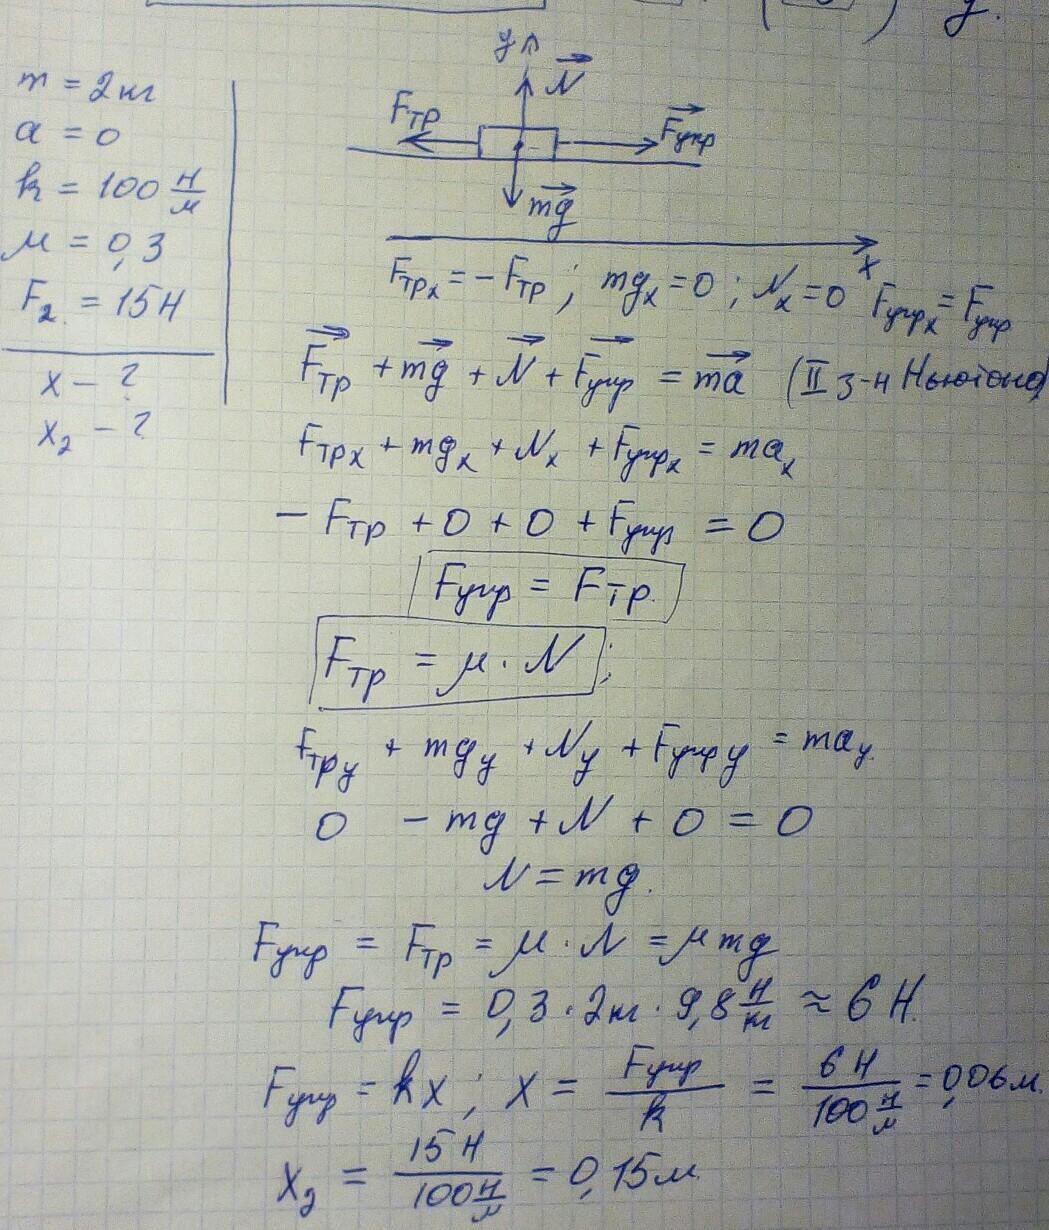 y.
m = 2кг
a = 0
k = 100 Н/м
μ = 0,3
F₂ = 15Н
x - ?
x₂ - ?
y N⃗
Fтр F⃗упр
mg⃗
x
Fтрₓ = - Fтр ; mgₓ = 0 ; Nₓ = 0 Fупрₓ = Fупр
F⃗тр + mg⃗ + N⃗ + F⃗упр = ma⃗ (II з-н Ньютона)
Fтрₓ + mgₓ + Nₓ + Fупрₓ = maₓ
- Fтр + 0 + 0 + Fупр = 0
Fупр = Fтр.
Fтр = μ · N ;
Fтр y + mg y + N y + Fупр y = ma y.
0 - mg + N + 0 = 0
N = mg.
Fупр = Fтр = μ · N = μmg
Fупр = 0,3 · 2кг · 9,8 Н/кг ≈ 6 Н.
Fупр = kx ; x = Fупр/k = 6Н/100 Н/м = 0,06м.
x₂ = 15Н/100 Н/м = 0,15м.